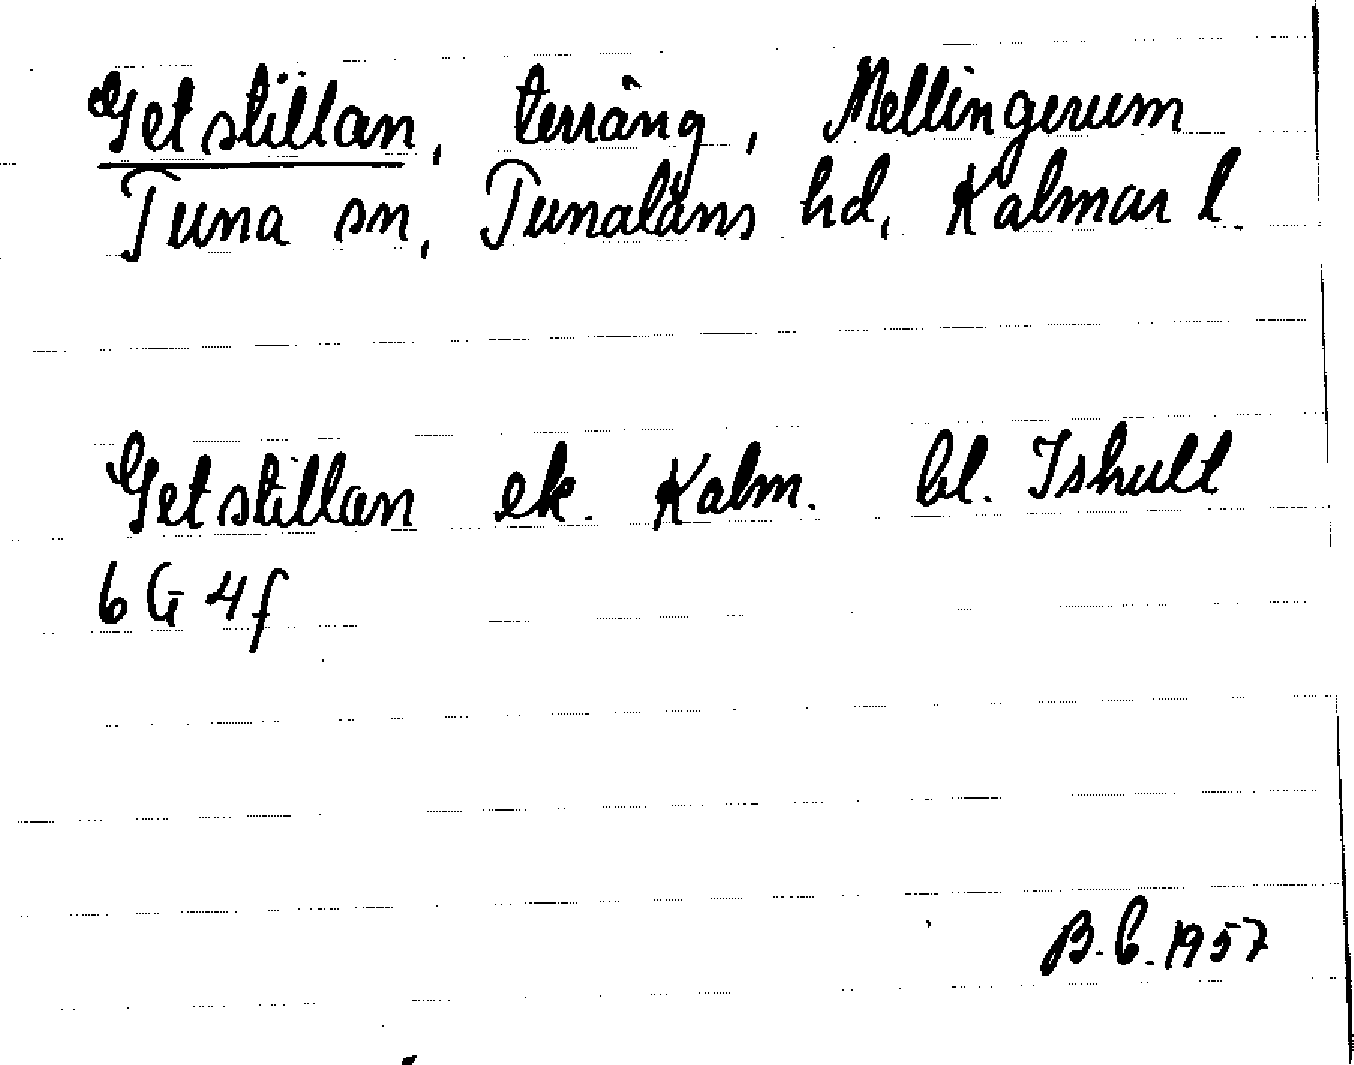 Getstillan, terräng, Mellingerum
Tuna sn, Tunaläns hd, Kalmar l.
Getstillan ek. Kalm. bl. Ishult
6G 4f
B.C. 1957